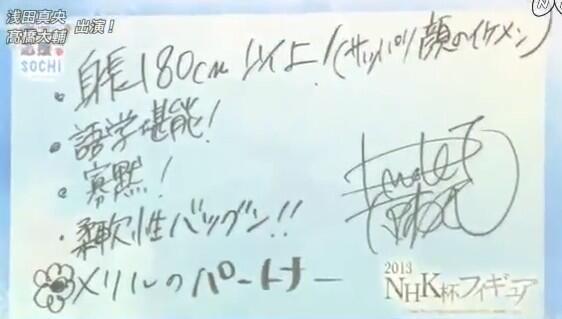 浅田真央
髙橋大輔 出演!
SOCHI
・身長180cm以上!(サッパリ顔のイケメン)
・語学堪能!
・寡黙!
・柔軟性バツグン!!
メリルのパートナー
2013
NHK杯フィギュア